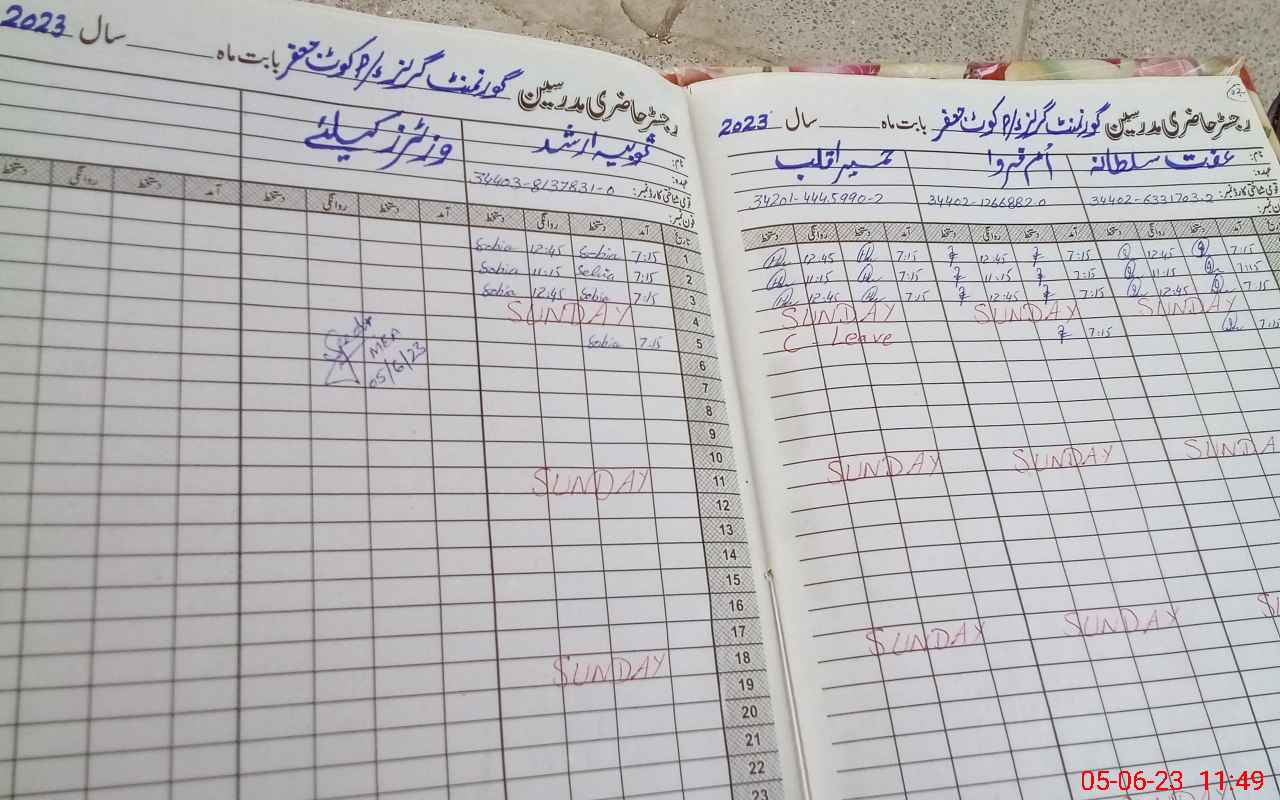 رجسٹر حاضری مدرسین گورنمنٹ گرلز P/S کوٹ جعفر بابت ماہ ____ سال 2023
نام: عفت سلطانہ ام فروا
عہدہ:
قومی شناختی کارڈ نمبر: 34402-6331703-2 34402-1266882-0 34201-4445990-2
فون نمبر:
آمد دستخط روانگی دستخط آمد دستخط روانگی دستخط آمد دستخط روانگی دستخط
7:15 12:45 7:15 12:45 7:15 12:45
7:15 11:15 7:15 11:15 7:15 11:15
7:15 12:45 7:15 12:45 7:15 12:45
SUNDAY SUNDAY SUNDAY
7:15 7:15 C - Leave
SUNDAY SUNDAY SUNDA
SUNDAY SUNDAY
رجسٹر حاضری مدرسین گورنمنٹ گرلز P/S کوٹ جعفر بابت ماہ ____ سال 2023
نام: ثوبیہ ارشد وزٹرز کیلئے
عہدہ:
قومی شناختی کارڈ نمبر: 34403-8137831-0
فون نمبر:
تاریخ آمد دستخط روانگی دستخط آمد دستخط روانگی دستخط آمد دستخط روانگی دستخط
1 7:15 Sobia 12:45 Sobia
2 7:15 Sobia 11:15 Sobia
3 7:15 Sobia 12:45 Sobia
4 SUNDAY
5 7:15 Sobia
MEA
05/6/23
6
7
8
9
10
11 SUNDAY
12
13
14
15
16
17
18 SUNDAY
19
20
21
22
23
05-06-23 11:49